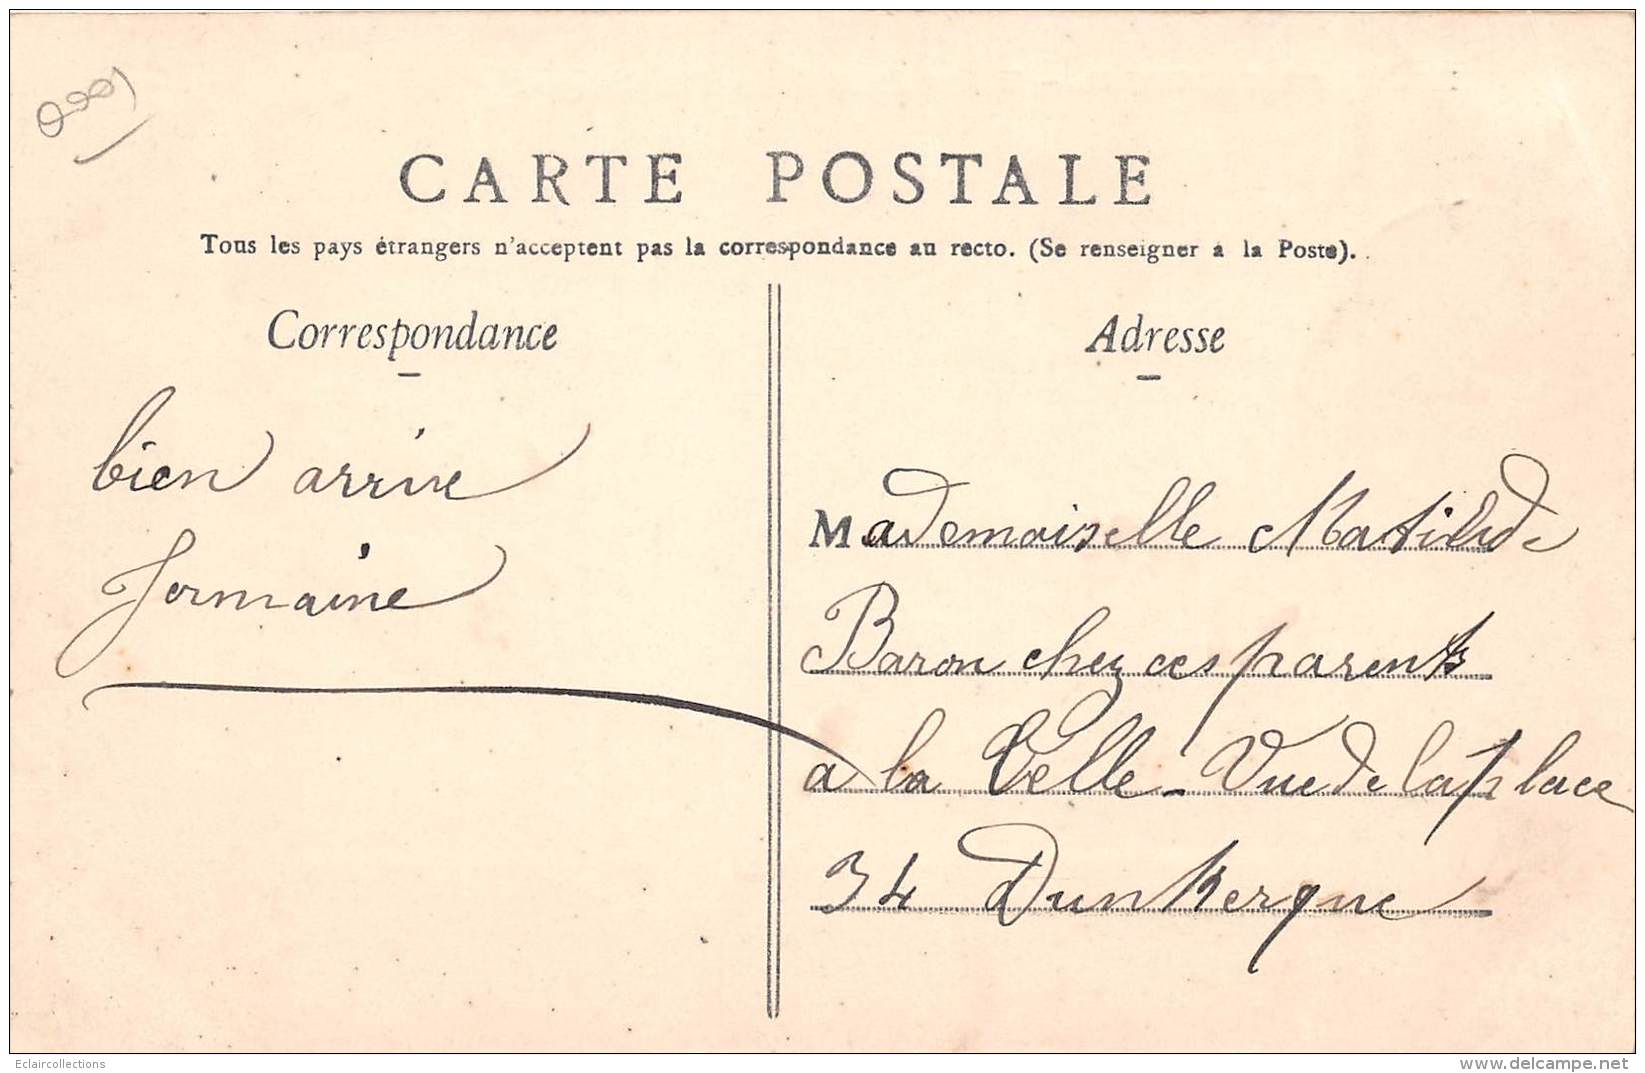 CARTE POSTALE
Tous les pays étrangers n'acceptent pas la correspondance au recto. (Se renseigner à la Poste).
Correspondance
bien arrive
Germaine
Adresse
Mademoiselle Matilde
Baron chez ces parents
a la Belle-Vue de la place
34 Dunkerque
Eclaircollections
http://www.delcampe.net